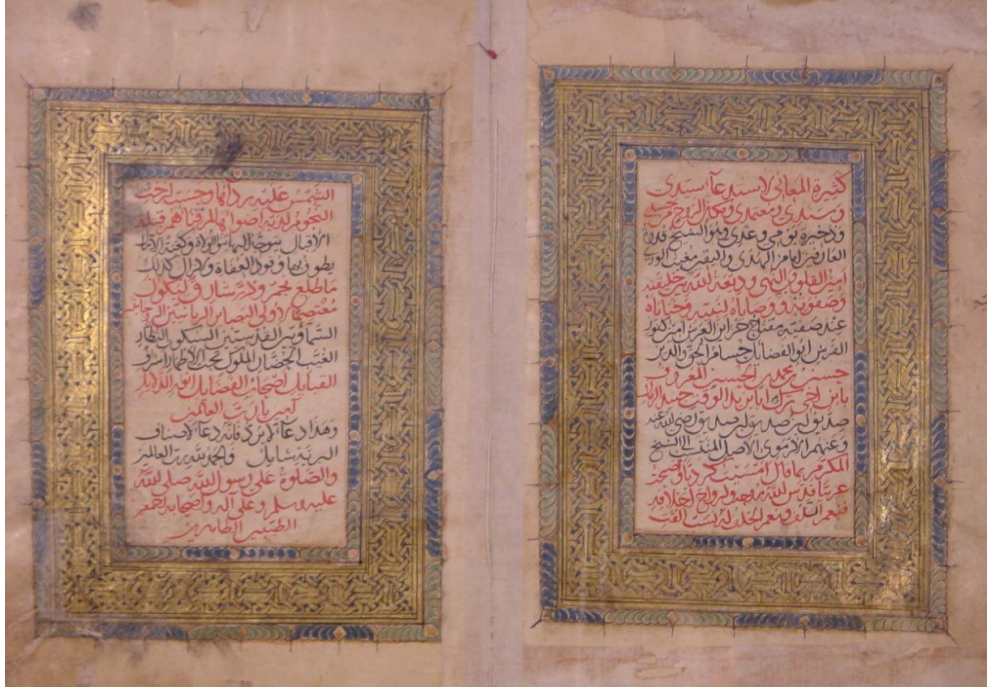 كثيرة المعاني لاستدعاء سيدي
وسندي ومعتمدي ومكان الروح من جسدي
وذخيرة يومي وغدي وهو الشيخ قدوة
العارفين امام الهدى واليقين مغيث الورى
امين القلوب والنهى وديعة الله بين خليقته
وصفوته ووصاياه لنبيه وخباياه
عند صفيه مفتاح خزائن العرش امين كنوز
الفرش ابو الفضايل حسام الحق والدين
حسن بن محمد بن الحسن المعروف
بابن اخي ترك ابا يزيد الوقت جنيد الزمان
صديق بن صديق بن صديق رضي الله عنه
وعنهم الارموي الاصل المنتسب الى الشيخ
المكرم بما قال امسيت كرديا واصبحت
عربيا قدس الله روحه وارواح اخلافه
فنعم السلف ونعم الخلف له نسب القت
الشمس عليه رداءها وحسب ارخت
النجوم لديه اضواءها لم قبلة
الاقبال يتوجه اليها بنو الولاة وكعبة الآمال
يطوف بها وفود العفاة ولا زال كذلك
ما طلع نجم وذر شارق ليكون
معتصما لاولي البصاير الربانيين
السكوت النظار
الغيب الحضار الملوك تحت الاطمار اشراف
القبايل اصحاب الفضايل انوار الدلايل
آمين يا رب العالمين
وهذا دعاء لا يرد فانه دعاء لاصناف
البرية شامل والحمد لله رب العالمين
والصلوة على رسول الله صلى الله
عليه وسلم وعلى آله واصحابه اجمعين
الطيبين الطاهرين